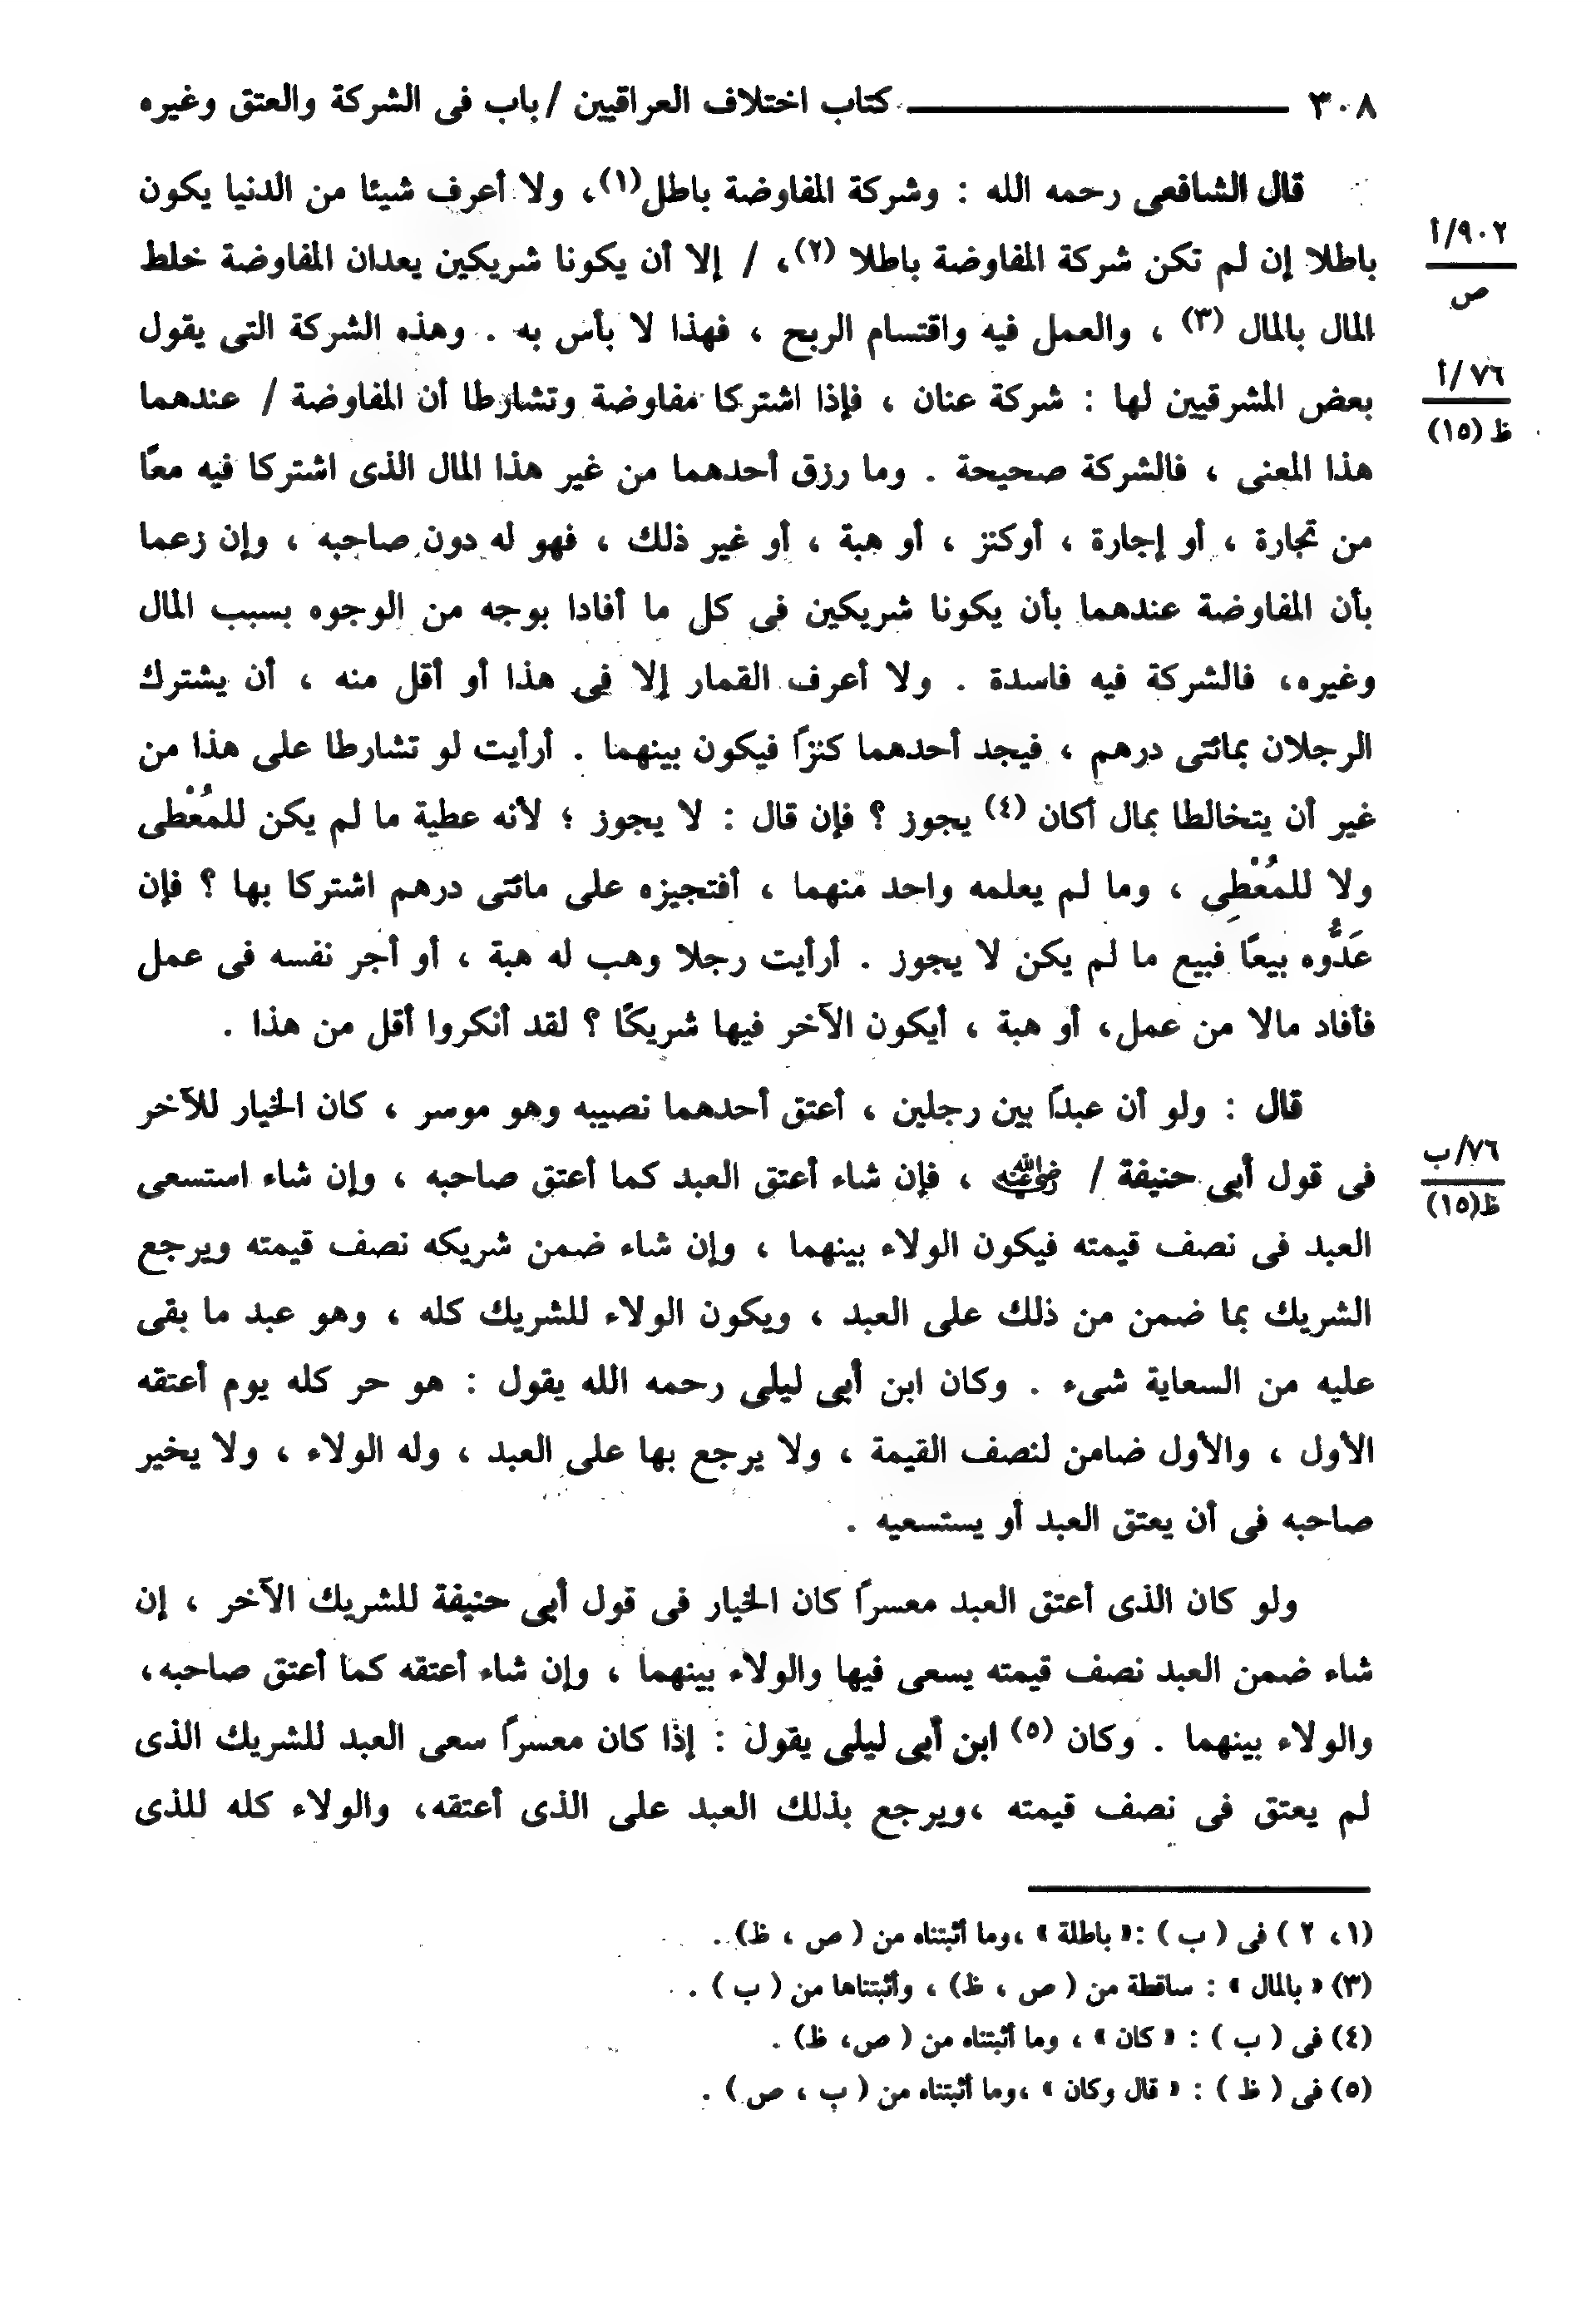 ٣٠٨ كتاب اختلاف العراقيين / باب فى الشركة والعتق وغيره
قال الشافعى رحمه الله : وشركة المفاوضة باطل(١)، ولا أعرف شيئا من الدنيا يكون
باطلا إن لم تكن شركة المفاوضة باطلا (٢)، / إلا أن يكونا شريكين يعدان المفاوضة خلط
٩٠٢/أ
ص
المال بالمال (٣) ، والعمل فيه واقتسام الربح ، فهذا لا بأس به . وهذه الشركة التى يقول
بعض المشرقيين لها : شركة عنان ، فإذا اشتركا مفاوضة وتشارطا أن المفاوضة / عندهما
٧٦/أ
ظ (١٥)
هذا المعنى ، فالشركة صحيحة . وما رزق أحدهما من غير هذا المال الذى اشتركا فيه معًا
من تجارة ، أو إجارة ، أوكنز ، أو هبة ، أو غير ذلك ، فهو له دون صاحبه ، وإن زعما
بأن المفاوضة عندهما بأن يكونا شريكين فى كل ما أفادا بوجه من الوجوه بسبب المال
وغيره، فالشركة فيه فاسدة . ولا أعرف القمار إلا فى هذا أو أقل منه ، أن يشترك
الرجلان بمائتى درهم ، فيجد أحدهما كنزًا فيكون بينهما . أرأيت لو تشارطا على هذا من
غير أن يتخالطا بمال أكان (٤) يجوز ؟ فإن قال : لا يجوز ؛ لأنه عطية ما لم يكن للمُعْطى
ولا للمُعْطِى ، وما لم يعلمه واحد منهما ، أفتجيزه على مائتى درهم اشتركا بها ؟ فإن
عَدُّوه بيعًا فبيع ما لم يكن لا يجوز . أرأيت رجلا وهب له هبة ، أو أجر نفسه فى عمل
فأفاد مالا من عمل، أو هبة ، أيكون الآخر فيها شريكًا ؟ لقد أنكروا أقل من هذا .
قال : ولو أن عبدًا بين رجلين ، أعتق أحدهما نصيبه وهو موسر ، كان الخيار للآخر
فى قول أبى حنيفة / رضي الله عنه ، فإن شاء أعتق العبد كما أعتق صاحبه ، وإن شاء استسعى
٧٦/ب
ظ(١٥)
العبد فى نصف قيمته فيكون الولاء بينهما ، وإن شاء ضمن شريكه نصف قيمته ويرجع
الشريك بما ضمن من ذلك على العبد ، ويكون الولاء للشريك كله ، وهو عبد ما بقى
عليه من السعاية شىء . وكان ابن أبى ليلى رحمه الله يقول : هو حر كله يوم أعتقه
الأول ، والأول ضامن لنصف القيمة ، ولا يرجع بها على العبد ، وله الولاء ، ولا يخير
صاحبه فى أن يعتق العبد أو يستسعيه .
ولو كان الذى أعتق العبد معسرًا كان الخيار فى قول أبى حنيفة للشريك الآخر ، إن
شاء ضمن العبد نصف قيمته يسعى فيها والولاء بينهما ، وإن شاء أعتقه كما أعتق صاحبه،
والولاء بينهما . وكان (٥) ابن أبى ليلى يقول : إذا كان معسرًا سعى العبد للشريك الذى
لم يعتق فى نصف قيمته ،ويرجع بذلك العبد على الذى أعتقه، والولاء كله للذى
(١، ٢ ) فى ( ب ) :« باطلة » ،وما أثبتناه من ( ص ، ظ) .
(٣) « بالمال » : ساقطة من ( ص ، ظ) ، وأثبتناها من ( ب ) .
(٤) فى ( ب ) : « كان » ، وما أثبتناه من ( ص، ظ) .
(٥) فى ( ظ ) : « قال وكان » ،وما أثبتناه من ( ب ، ص ) .